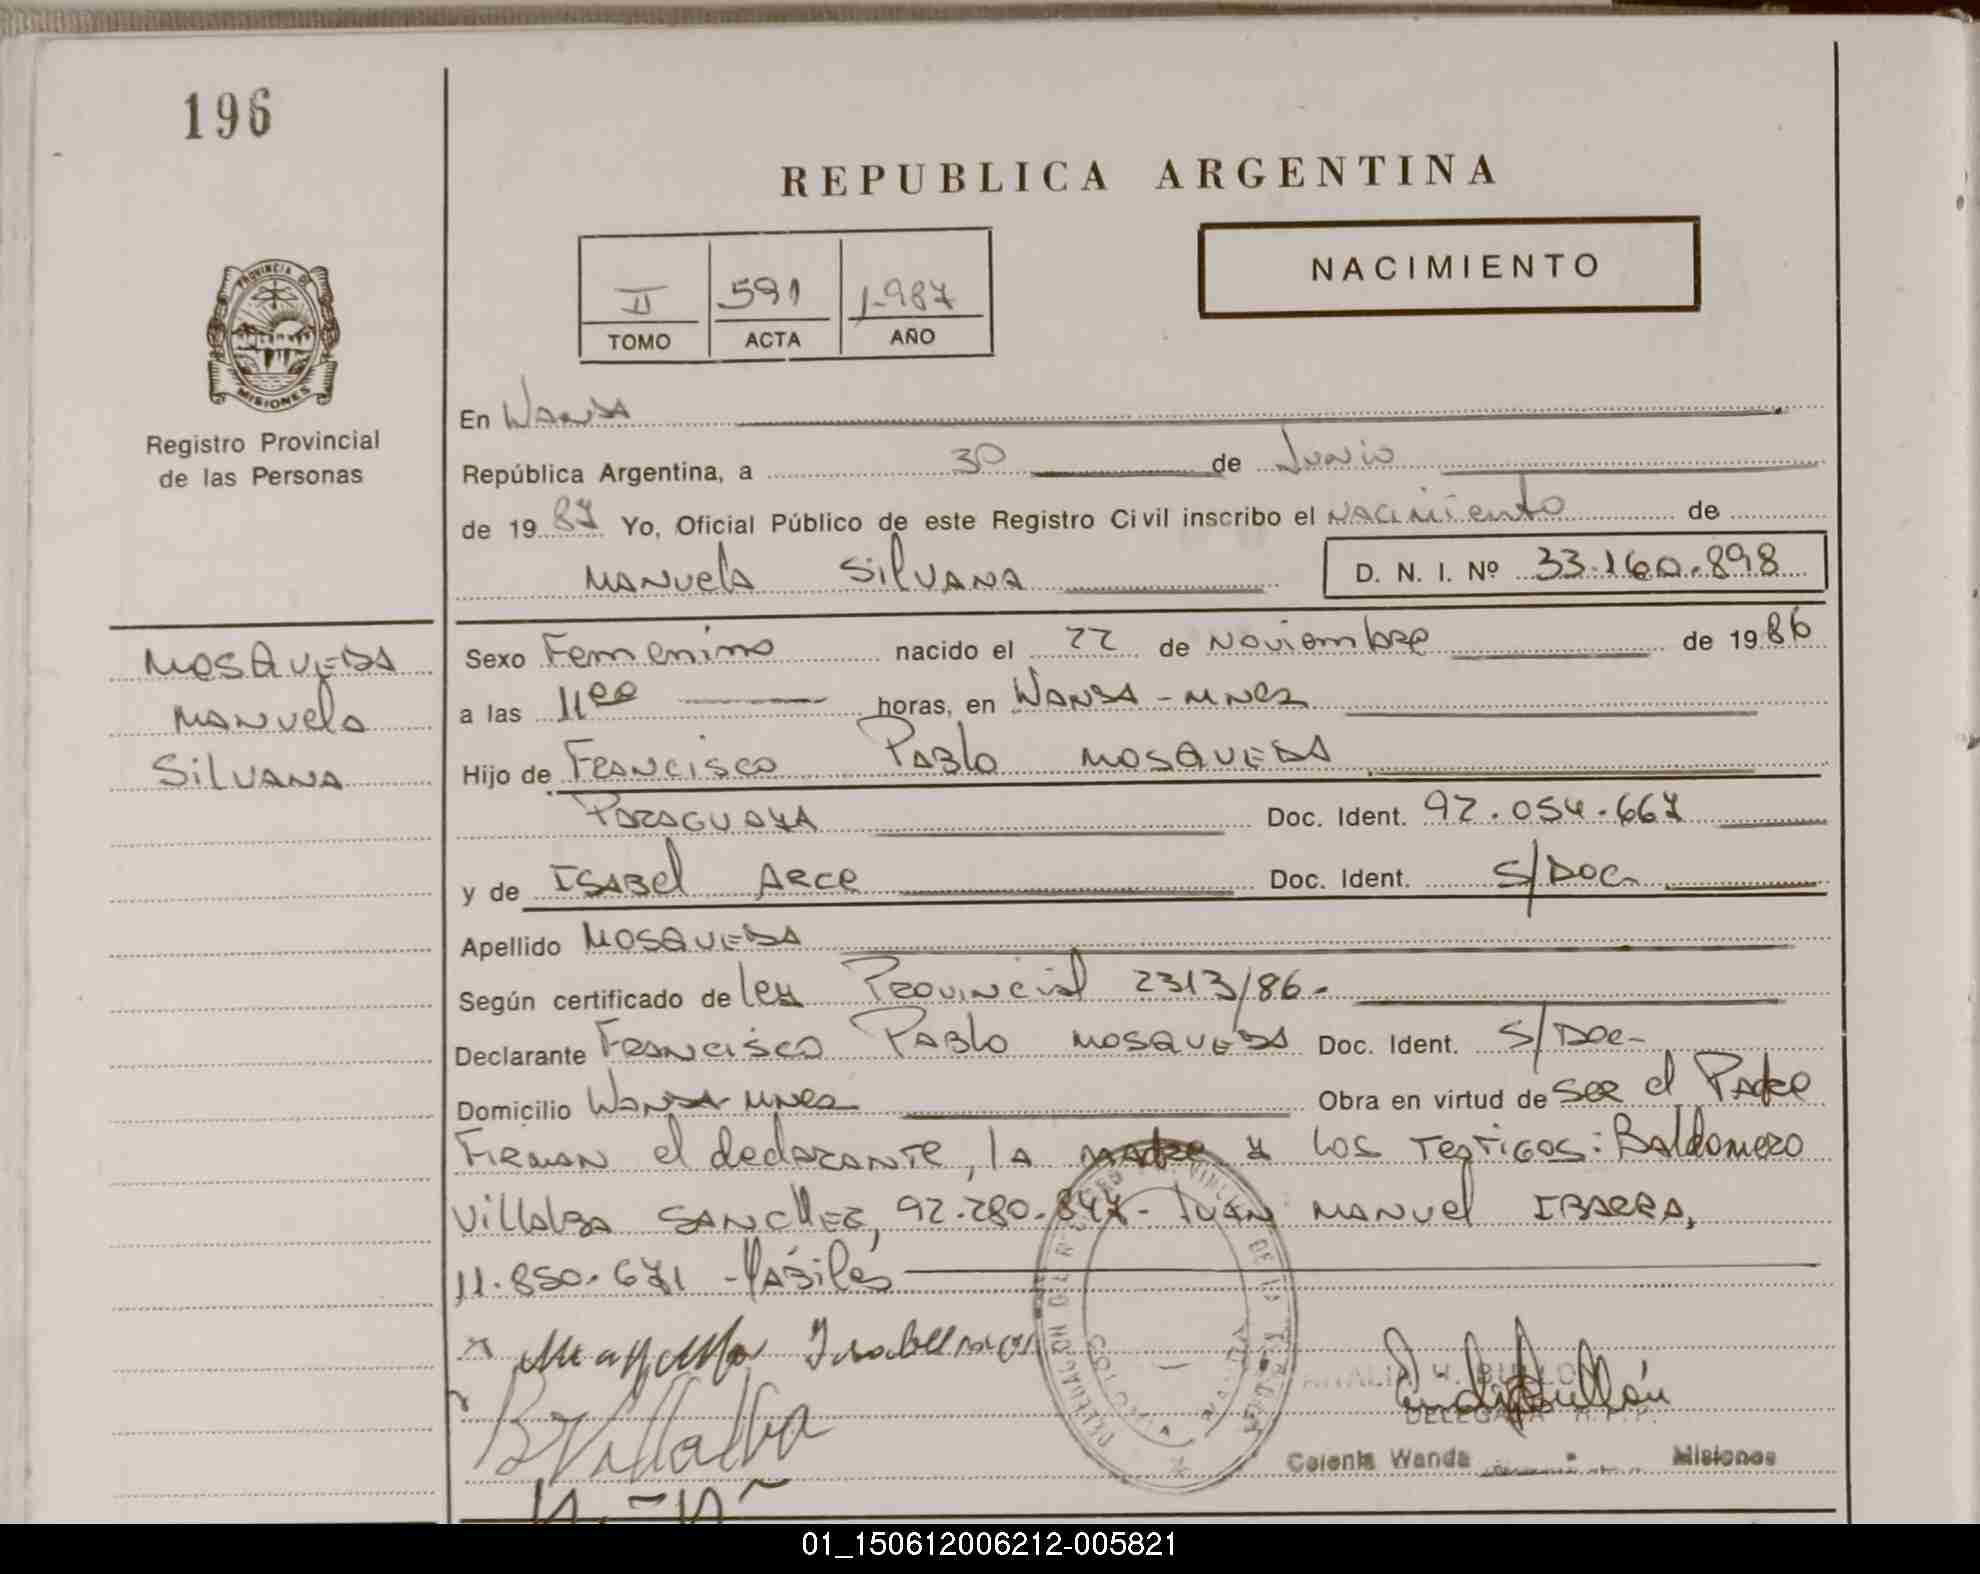 196
REPUBLICA ARGENTINA
NACIMIENTO
II 591 1.987
TOMO ACTA AÑO
PROVINCIA DE
MISIONES
Registro Provincial
de las Personas
En Wanda
República Argentina, a 30 de Junio
de 1987 Yo, Oficial Público de este Registro Civil inscribo el nacimiento de
Manuela Silvana D. N. I. Nº 33.160.898
MOSQUEDA
Manuela
Silvana
Sexo Femenino nacido el 22 de Noviembre de 1986
a las 11 00 horas, en Wanda - Mnes
Hijo de Francisco Pablo MOSQUEDA
Paraguaya Doc. Ident. 92.054.667
y de Isabel Arce Doc. Ident. S/Doc.
Apellido MOSQUEDA
Según certificado de ley Provincial 2313/86.
Declarante Francisco Pablo MOSQUEDA Doc. Ident. S/Doc-
Domicilio Wanda Mnes Obra en virtud de ser el Padre
Firman el declarante, la madre y los testigos: Baldomero
Villalba SANCHEZ, 92.280.847- Juan Manuel IBARRA,
11.850.671 - Hábiles
B Villalba
DELEGADA R.P.P.
Colonia Wanda Misiones
01_150612006212-005821